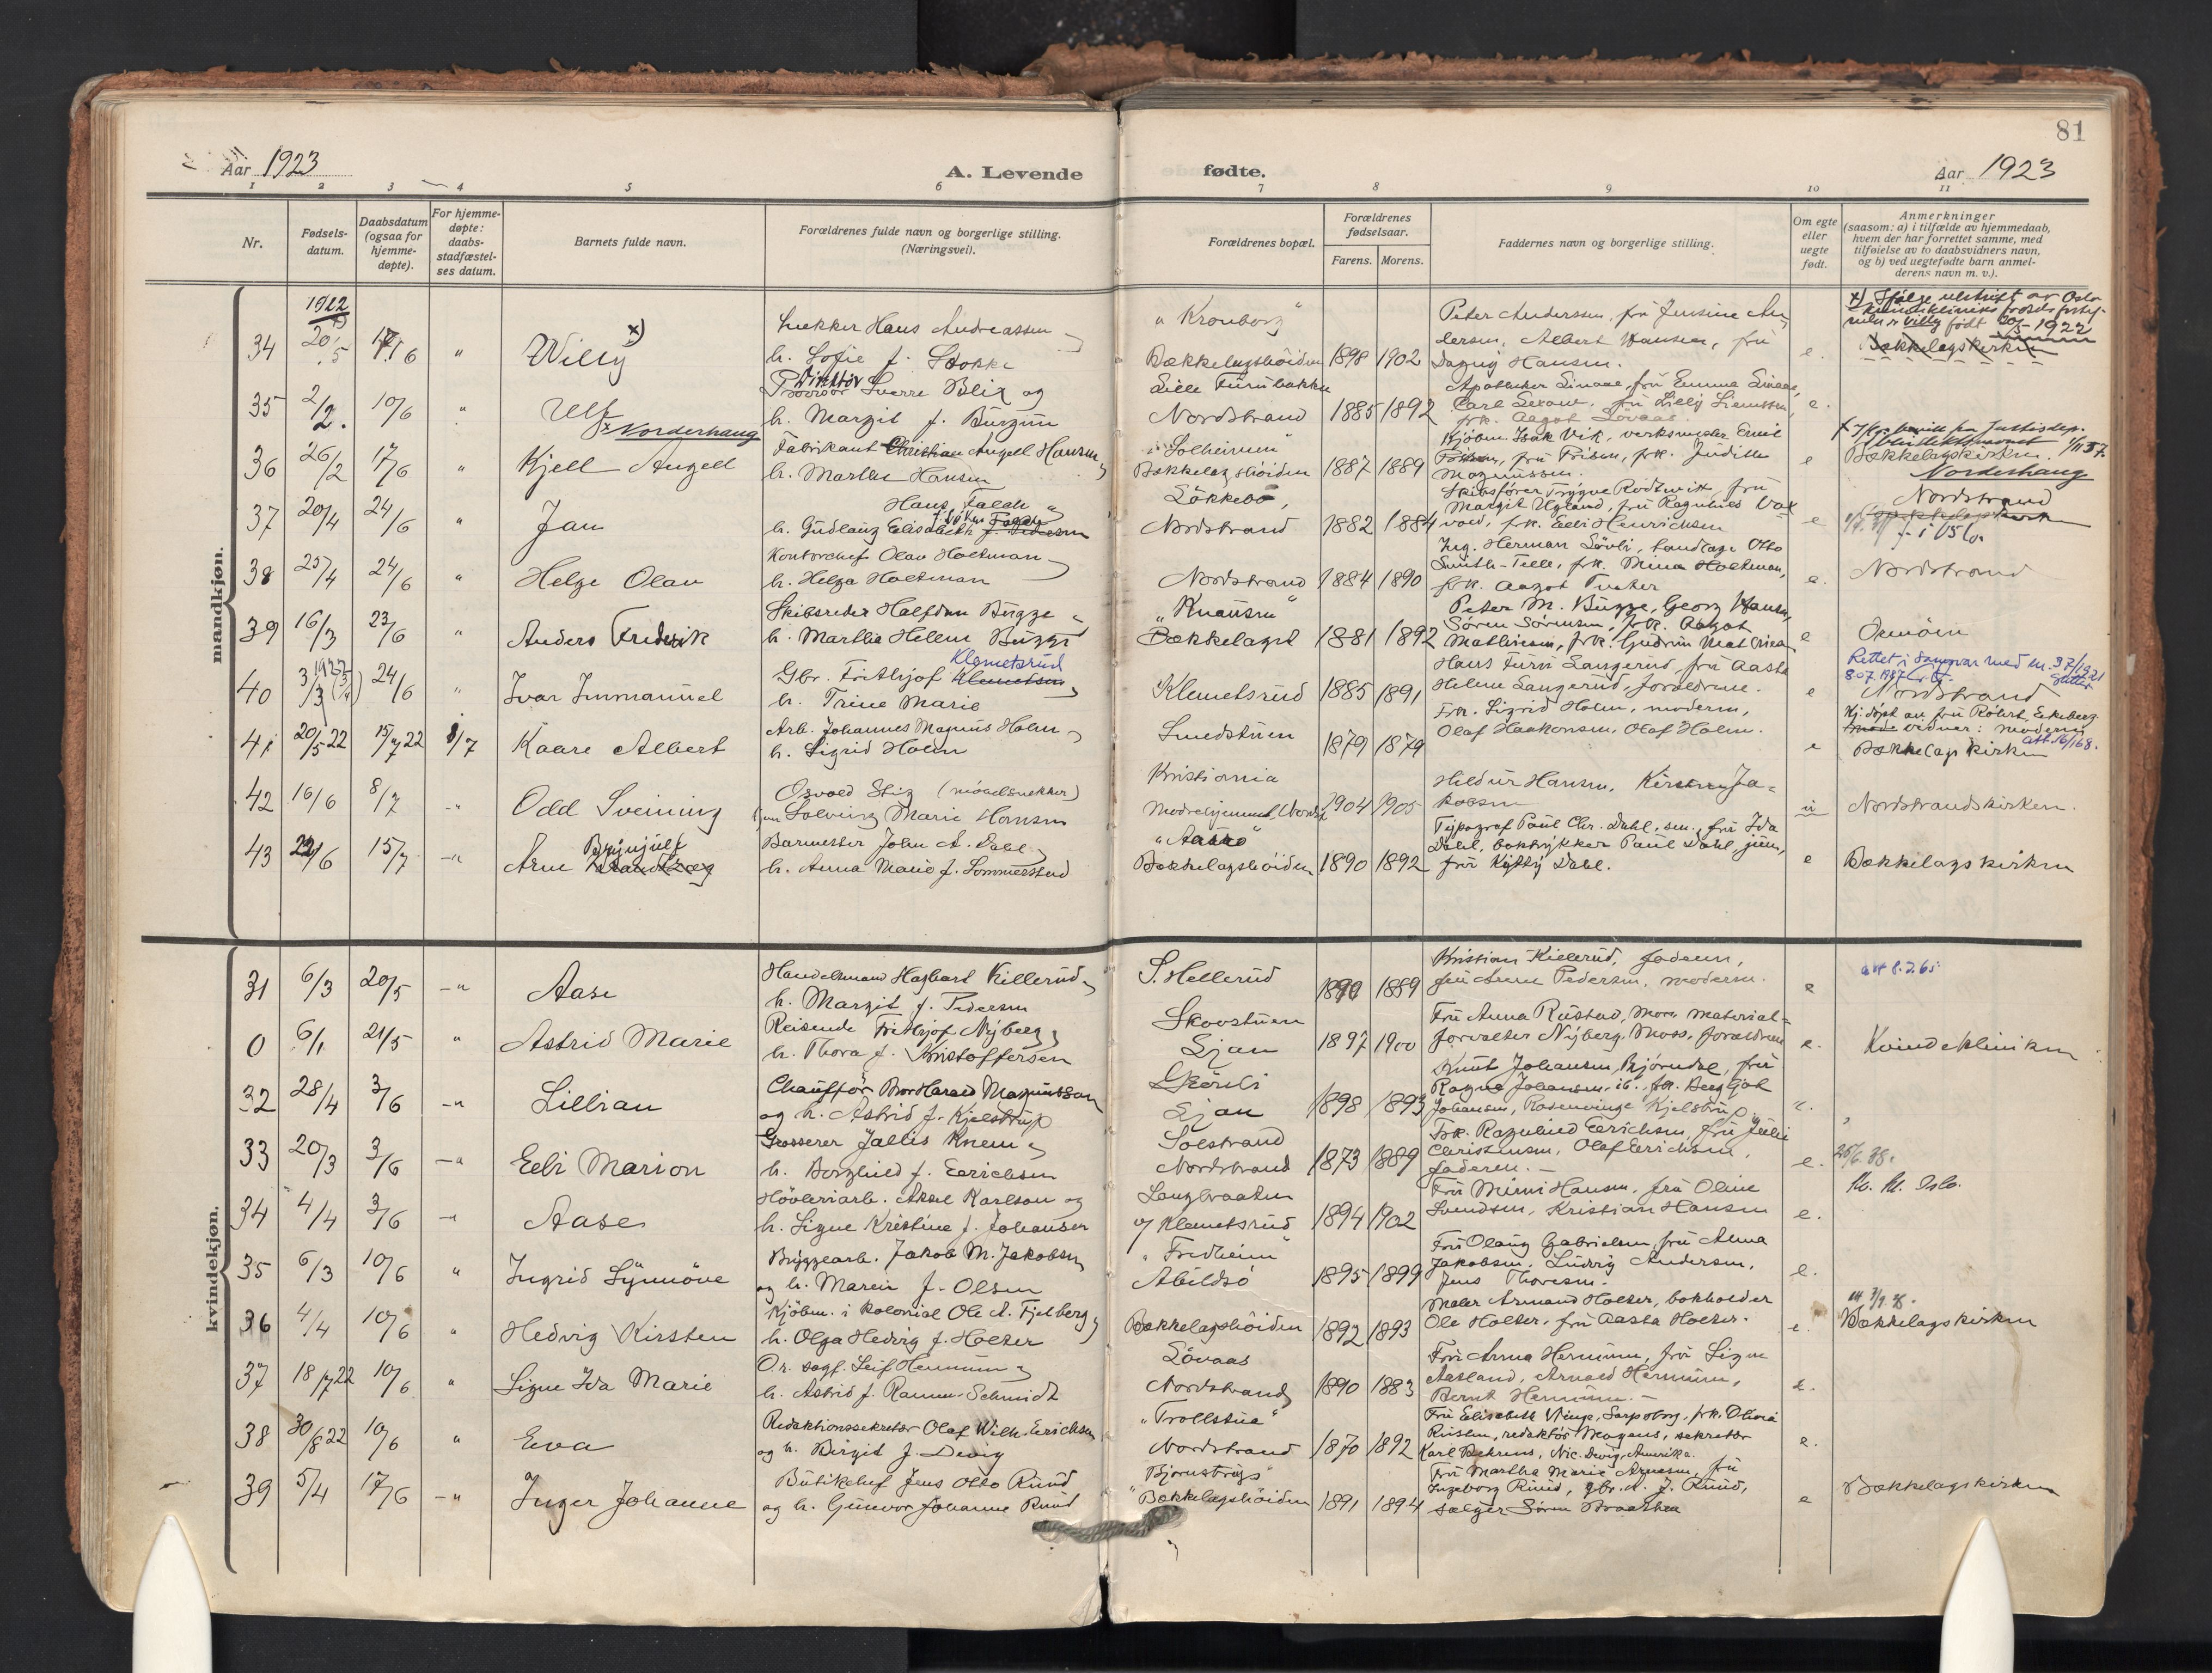 81
Aar 1923
A. Levende
fødte.
Aar 1923
1 2 3 4 5 6 7 8 9 10 11
Nr.
Fødsels-
datum.
Daabsdatum
(ogsaa for
hjemme-
døpte).
For hjemme-
døpte:
daabs-
stadfæstel-
ses datum.
Barnets fulde navn.
Forældrenes fulde navn og borgerlige stilling.
(Næringsvei).
Forældrenes bopæl.
Forældrenes
fødselsaar.
Farens. Morens.
Faddernes navn og borgerlige stilling.
Om egte
eller
uegte
født.
Anmerkninger
(saasom: a) i tilfælde av hjemmedaab,
hvem der har forrettet samme, med
tilføielse av to daabsvidners navn,
og b) ved uegtefødte barn anmel-
derens navn m. v.).
mandkjøn.
1922
34 20/5 17/6 " Willy x)
Snekker Hans Andreassen
h. Sofie f. Stokke
"Kronborg"
Bækkelagshöiden 1898 1902
Peter Andersen, fru Jensine An-
dersen, Albert Hansen, fru
Dagny Hansen. e.
x) Ifølge utskrift av Oslo
født 20/5-1922
Bækkelagskirken
35 2/2. 10/6 " Ulf
Direktör Sverre Blix og
h. Margit f.
Lille Furubakken
Nordstrand 1885 1892
Apotheker Linaae, fru Emma Linaae,
Carl fru Lilly
frk. Aagot Lövaas e.
36 26/2 17/6 " Kjell Angell x Norderhaug
Fabrikant Christian Angell Hansen
h. Marthe Hansen
"Solheimen"
Bækkelagshöiden 1887 1889
Kjöbm. Isak Vik, verksmester Emil
fru frk. Judith
Magnussen e
Justisdep.
Bækkelagskirken. 1/11 37.
Norderhaug
37 20/4 24/6 " Jan
Hans Faldh
h. Gudlaug Elisabeth f. Pedersen
Lökkebo,
Nordstrand 1882 1884
Skibsförer Trygve fru
Margit Ugland, fru Ragnhild
frk. Elli Henrichsen e
Nordstrand
38 25/4 24/6 " Helge Olav
Kontorchef Olav Holtman
h. Helga Holtman
Nordstrand 1884 1890
Ing. Herman Lövli, tandlæge Otto
Smith-Telle, frk. Mina Holtman,
frk. Aagot e.
Nordstrand
39 16/3 23/6 " Anders Frederik
Skibsreder Halfdan Bugge
h. Martha Helene Bugge
"Knausen"
Bækkelaget 1881 1892
Peter M. Bugge, Georg Hansen,
Sören Sörensen, frk. Aagot
Mathiesen, frk. Gudrun Mathiesen e
Ormöen
40 3/3 1922 24/6 " Ivar Immanuel
Gbr. Frithjof Klemetsen Klemetsrud
h. Trine Marie
Klemetsrud 1885 1891
Hans Furu Langerud, fru Aasta
Helene Langerud, foraeldrene. e
Rettet i samsvar med
Nordstrand
41 20/5 22 15/7 22 8/7 Kaare Albert
Arb. Johannes Magnus Holm
h. Sigrid Holm
Smedstuen
1879 1879
Frk. Sigrid Holm, moderen,
Olaf Haakonsen, Olaf Holm. e
Hj. döpt av fru Röhrt, Ekeberg.
vidner: moderen
att. 16/1 68.
Bækkelagskirken
42 16/6 8/7 " Odd Sveining
Osvald Stig (möbelsnekker)
Solveig Marie Hansen
Kristiania
Mödrehjemmet, Nordst. 1904 1905
Hildur Hansen, Kirsten Ja-
kobsen u
Nordstrandskirken.
43 22/6 15/7 " Arne Brynjulf
Barmester John A. Dahl
h. Anna Marie f. Sommerstad
"Aasbo"
Bækkelagshöiden 1890 1892
Typograf Paul Chr. Dahl, sen., fru Ida
Dahl, boktrykker Paul Dahl, jun.,
fru Kitty Dahl. e
Bækkelagskirken
kvindekjøn.
31 6/3 20/5 " Aase
Handelsmand Hagbart Killerud
h. Margit f. Pedersen
S. Hellerud
1890 1889
Kristian Killerud, faderen,
fru Anne Pedersen, moderen. e
att 8.2.65
0 6/1 21/5 " Astrid Marie
Reisende Frithjof Nyberg
h. Thora f. Kristoffersen
Skovstuen
Ljan 1897 1900
Fru Anna Rustad, Moss, material-
forvalter Nyberg, Moss, foraeldrene e.
Kvindekliniken
32 28/4 3/6 " Lillian
Chaufför Thor Harald Magnussen
og h. Astrid f. Kjelstrup
Ljan 1898 1893
Knut Johansen, Bjørndal, fru
Ragna Johansen, ib., frk. Bergljot
Johansen, Rosenvinge Kjelstrup e.
33 20/3 3/6 " Elbi Marion
Grosserer Jallis Knem
h. Borghild f. Erichsen
Solstrand
Nordstrand 1873 1889
Frk. Ragnhild Erichsen, fru Julie
Christensen, Olaf Erichsen,
faderen. e.
25/6 38.
34 4/4 3/6 " Aase
Hövleriarb. Aksel Karlson og
h. Signe Kristine f. Johansen
Langbraaten
pr Klemetsrud 1894 1902
Fru Mimi Hansen, fru Oline
Svendsen, Kristian Hansen e.
Kv. kl. Oslo.
35 6/3 10/6 " Ingrid Synnöve
Bryggearb. Jakob M. Jakobsen
og h. Marein f. Olsen
"Fredheim"
Abildsö 1895 1899
Fru Olaug Gabrielsen, fru Anna
Jakobsen, Ludvig Andersen,
Jens Thoresen. e.
36 4/4 10/6 " Hedvig Kirsten
Kjöbm. i kolonial Ole A. Fjelberg
h. Olga Hedvig f. Holter
Bækkelagshöiden 1892 1893
Maler Armand Holter, bokholder
Ole Holter, fru Aasta Holter. e.
Bækkelagskirken
37 18/7 22 10/6 " Signe Ida Marie
O.r. sagf. Leif Hennum
h. Astrid f. Ramm-Schmidt
Lövaas
Nordstrand 1890 1883
Fru Anna Hennum, fru Signe
Aasland, Arnold Hennum,
Bernt Hennum. e.
38 30/8 22 10/6 " Eva
Redaktionssekretær Olaf Wilh. Erichsen
og h. Birgit f. Dewig
"Trollstua"
Nordstrand 1870 1892
Fru Elisabeth Vinge, Sarpsborg, frk. Olivia
redaktör Magnus, sekretær
Karl Behrens, Nic. Dewig, Amerika. e.
39 5/4 17/6 " Inger Johanne
Butikchef Jens Otto Ruud
og h. Gunvor Johanne Ruud
Bækkelagshöiden 1891 1894
Fru Martha Marie Arnesen, fru
Ingeborg Ruud, gbr. A. J. Ruud,
sælger Sören Braathen e
Bækkelagskirken